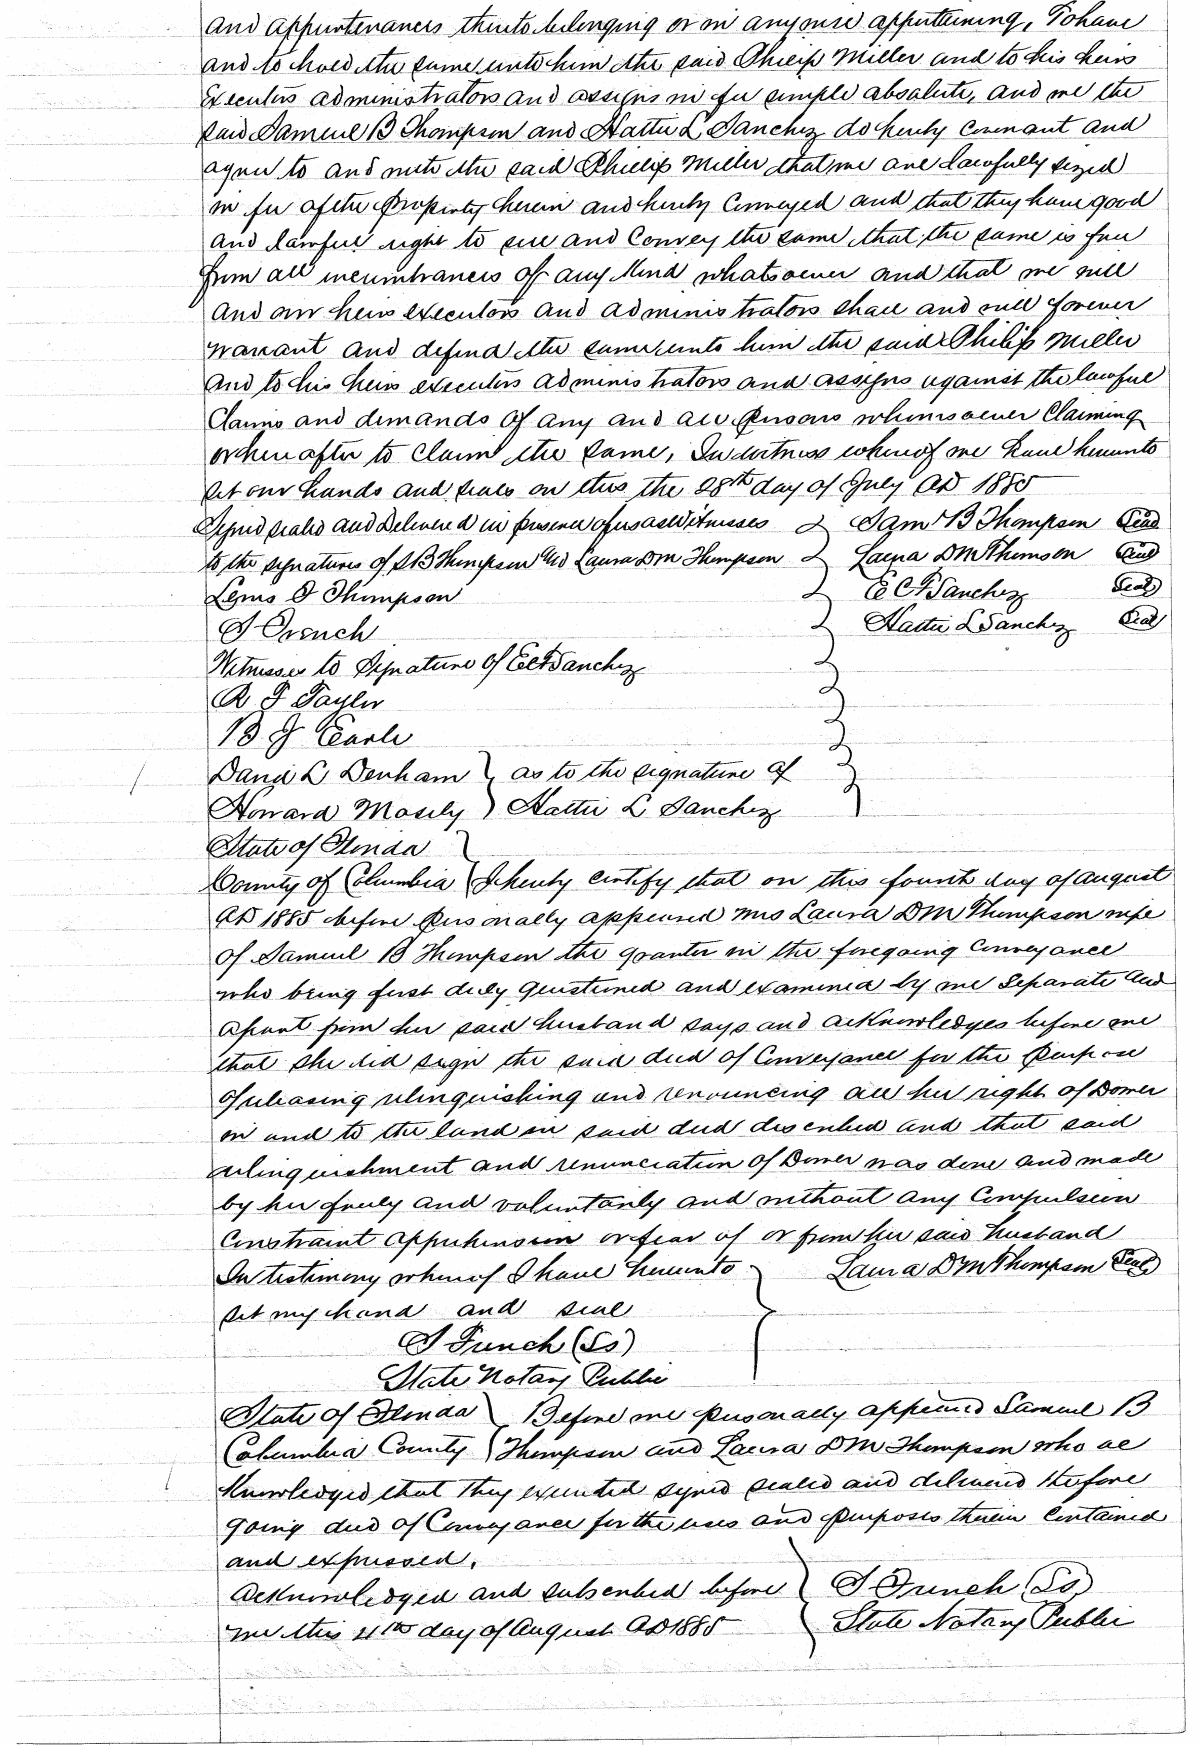 and appurtenances thereto belonging or in anywise appertaining, To have
and to hold the same unto him the said Philip Miller and to his heirs
Executors administrators and assigns in fee simple absolute, and we the
said Samuel B Thompson and Hattie L Sanchez do hereby Covenant and
agree to and with the said Phillip Miller that we are lawfully seized
in fee of the Property herein and hereby Conveyed and that they have good
and lawful right to sell and Convey the same that the same is free
from all incumbrances of any kind whatsoever and that we will
and our heirs executors and administrators shall and will forever
warrant and defend the same unto him the said Philip Miller
and to his heirs executors administrators and assigns against the lawful
Claims and demands of any and all Persons whomsoever Claiming
or hereafter to Claim the same, In witness whereof we have hereunto
set our hands and seals on this the 28th day of July AD 1885
Signed sealed and Delivered in presence of us as Witnesses Saml B Thompson Seal
to the signatures of S B Thompson and Laura DM Thompson Laura DM Thomson Seal
Lewis O Thompson E C F Sanchez Seal
J French Hattie L Sanchez Seal
Witnesses to Signature of E C F Sanchez
R F Taylor
B J Earle
David L Denham as to the signature of
Howard Mosely Hattie L Sanchez
State of Florida
County of Columbia I hereby certify that on this fourth day of August
AD 1885 before Personally appeared Mrs Laura DM Thompson wife
of Samuel B Thompson the grantor in the foregoing Conveyance
who being first duly questioned and examined by me Separate and
apart from her said husband says and acknowledges before me
that she did sign the said deed of Conveyance for the Purpose
of releasing relinquishing and renouncing all her right of Dower
in and to the land in said deed described and that said
relinquishment and renunciation of Dower was done and made
by her freely and voluntarily and without any Compulsion
Constraint apprehension or fear of or from her said husband
In testimony whereof I have hereunto Laura DM Thompson Seal
set my hand and seal
J French (Ls)
State Notary Public
State of Florida Before me personally appeared Samuel B
Columbia County Thompson and Laura DM Thompson who ac
knowledged that they executed signed sealed and delivered the fore
going deed of Conveyance for the uses and purposes therein Contained
and expressed.
Acknowledged and subscribed before J French (Ls)
me this 4th day of August AD 1885 State Notary Public